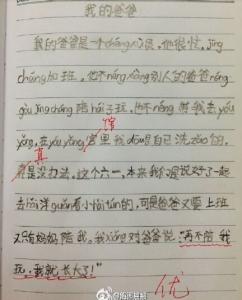 我的爸爸
我的爸爸是一个chǎng 民，他很忙，jīng
cháng加班，他不néng xiàng别人的爸爸néng
gòu jīng cháng 陪hái子玩，他不néng 我去yóu
馆
yǒng，去yóu yǒng 宫里我dōu是自己洗zǎo的，
真
是没办法。这个六一，本来我们 说好了一起
去hǎi洋guǎn看小hǎi tún的，可是爸爸又要上班
又只有妈妈陪我。我xiǎng对爸爸说："再不陪我
玩，我就长大了！"
优